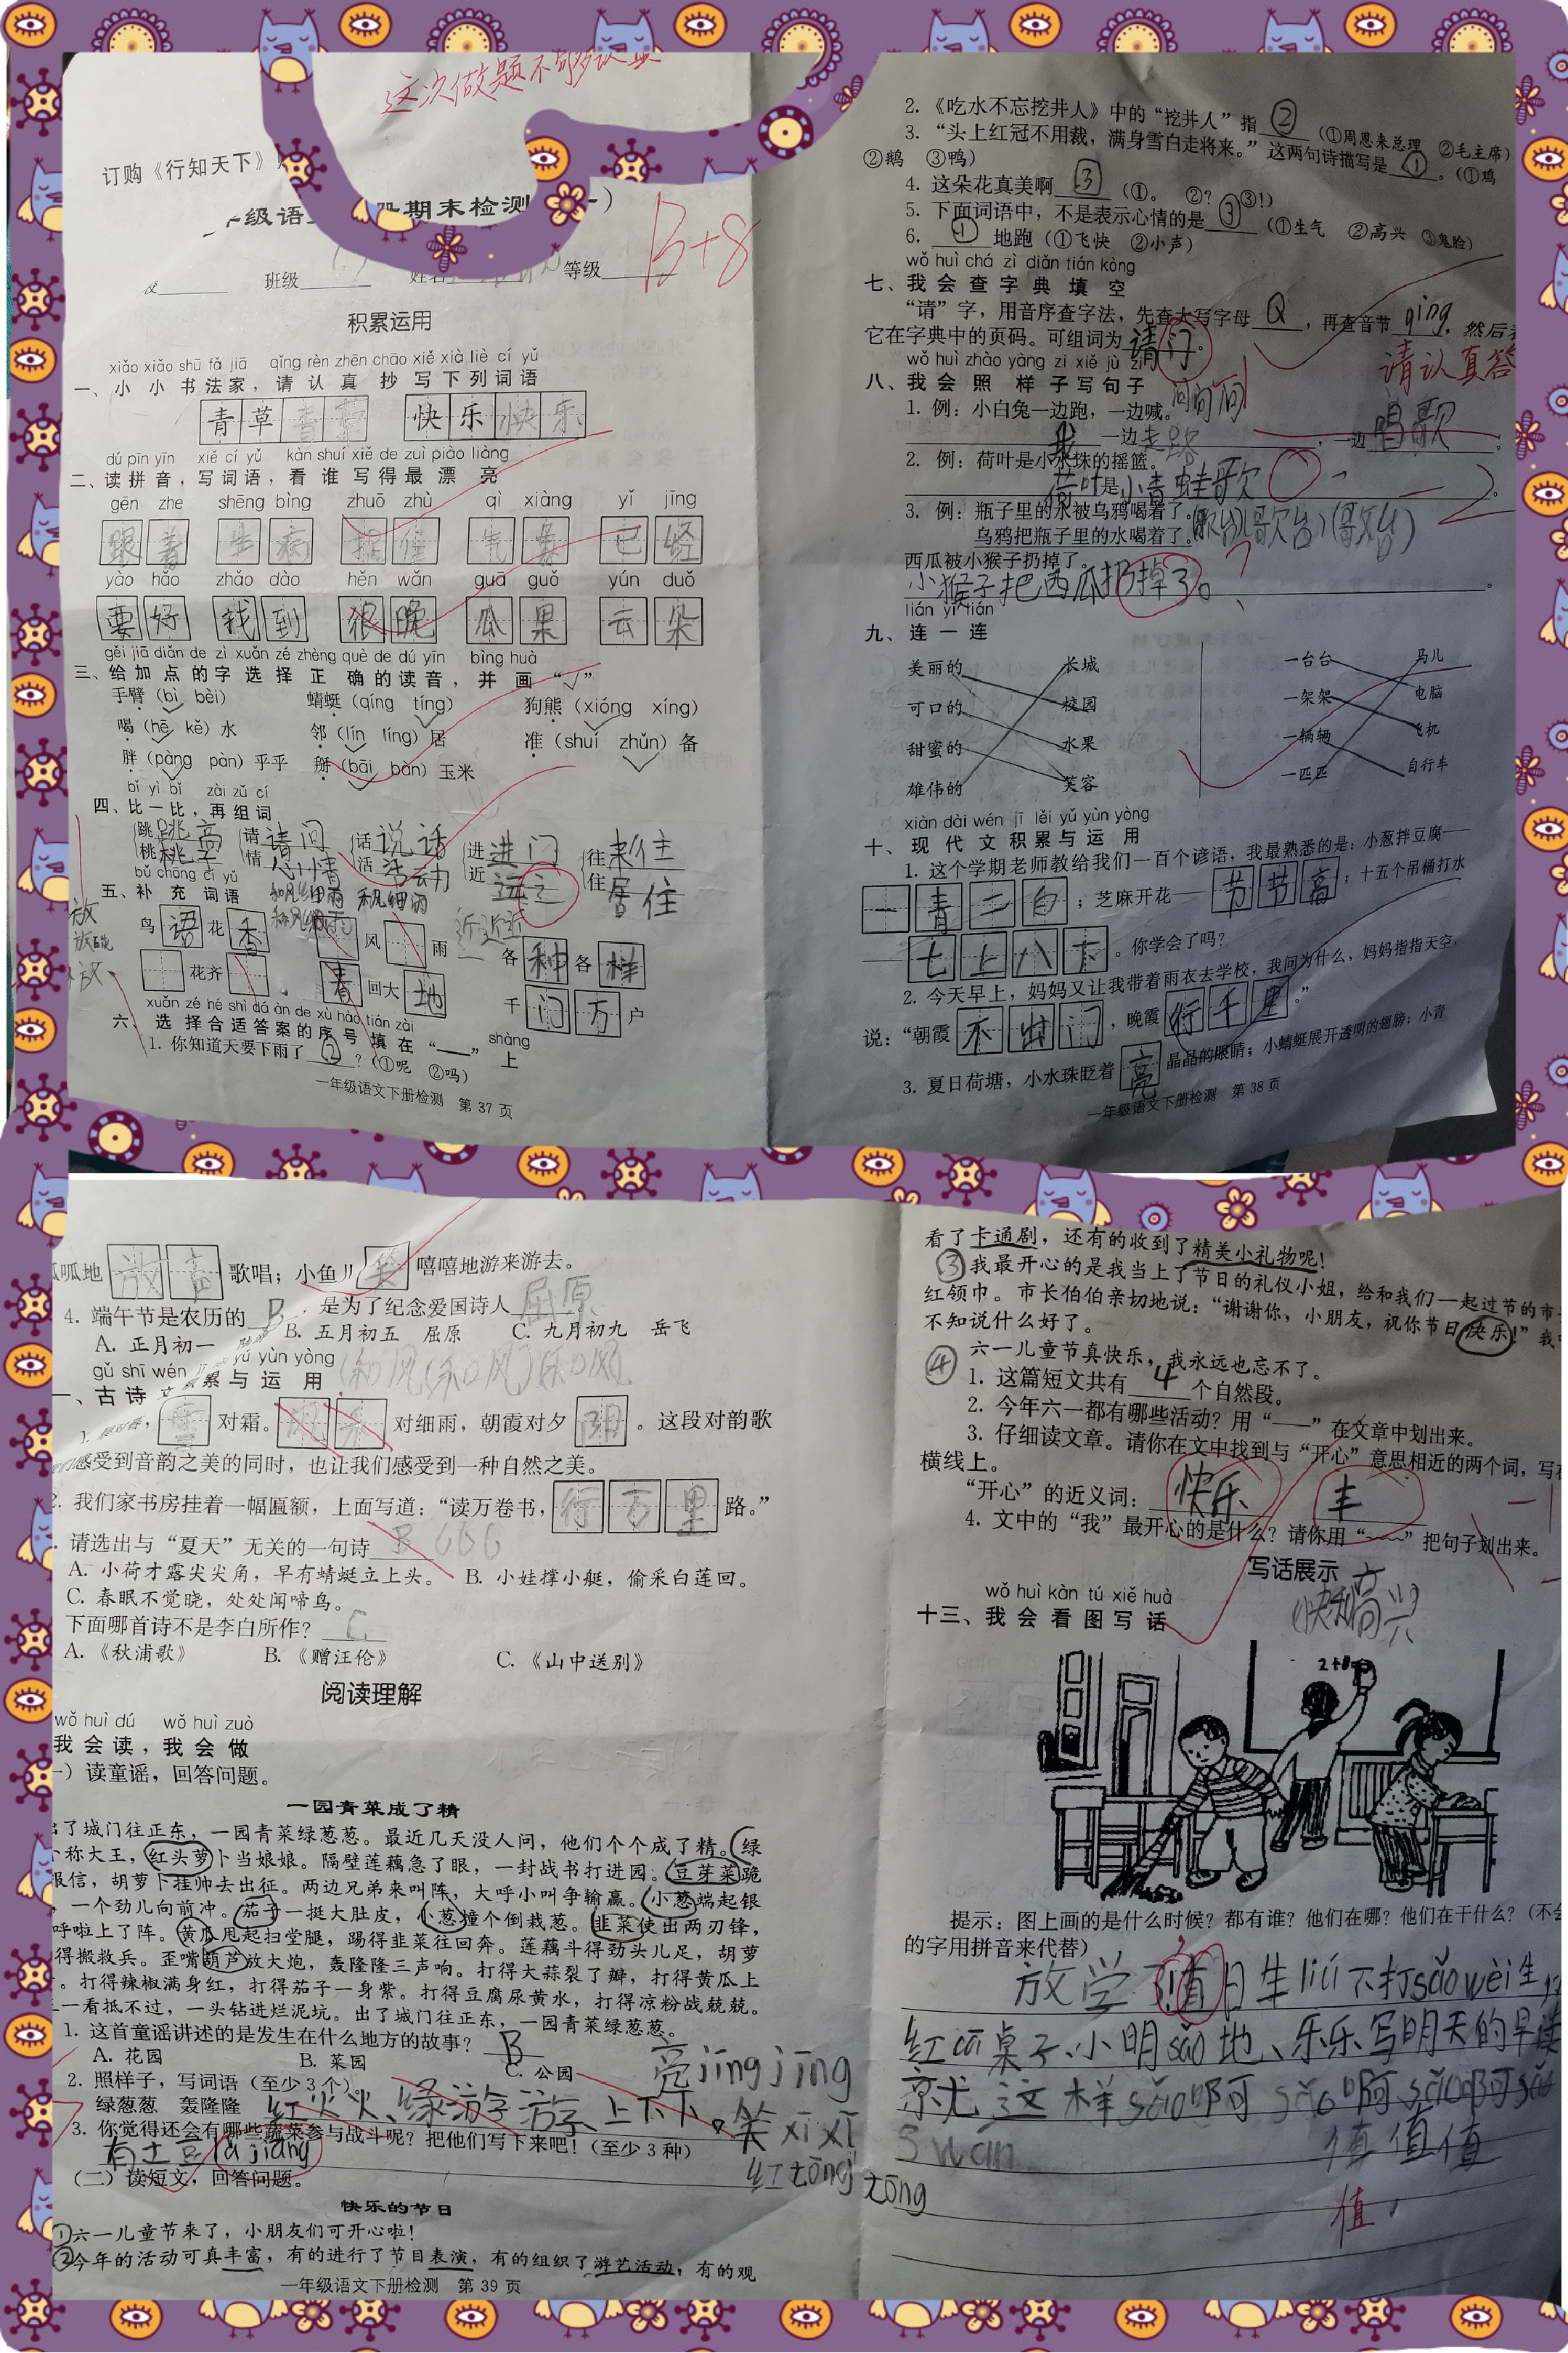 这次做题不够认真
订购《行知天下》
级语 册期末检测
B+8
班级 姓名 等级
积累运用
xiǎo xiǎo shū fǎ jiā qǐng rèn zhēn chāo xiě xià liè cí yǔ
一、小小书法家，请认真抄写下列词语
青草青草 快乐快乐
dú pīn yīn xiě cí yǔ kàn shuí xiě de zuì piào liàng
二、读拼音，写词语，看谁写得最漂亮
gēn zhe shēng bìng zhuō zhù qì xiàng yǐ jīng
跟着 生病 捉住 气象 已经
yào hǎo zhǎo dào hěn wǎn guā guǒ yún duǒ
要好 找到 很晚 瓜果 云朵
gěi jiā diǎn de zì xuǎn zé zhèng què de dú yīn bìng huà
三、给加点的字选择正确的读音，并画“√”
手臂（bì bèi） 蜻蜓（qíng tíng） 狗熊（xióng xíng）
喝（hē kě）水 邻（lín líng）居 准（shuí zhǔn）备
胖（pàng pàn）乎乎 掰（bāi bàn）玉米
bǐ yì bǐ zài zǔ cí
四、比一比，再组词
跳 跳高 请 请问 话 说话 进 进门 往 来往
桃 桃子 情 心情 活 活动 近 远之 住 居住
bǔ chōng cí yǔ
五、补充词语
鸟语花香 风 雨 各种各样
花齐 春回大地 千门万户
xuǎn zé hé shì dá àn de xù hào tián zài shàng
六、选择合适答案的序号填在“___”上
1. 你知道天要下雨了②？（①呢 ②吗）
一年级语文下册检测 第 37 页
2.《吃水不忘挖井人》中的“挖井人”指②（①周恩来总理 ②毛主席）
3. “头上红冠不用裁，满身雪白走将来。”这两句诗描写是①。（①鸡
②鹅 ③鸭）
4. 这朵花真美啊③（①。 ②？ ③！）
5. 下面词语中，不是表示心情的是③（①生气 ②高兴 ③鬼脸）
6. ①地跑（①飞快 ②小声）
wǒ huì chá zì diǎn tián kòng
七、我会查字典填空
“请”字，用音序查字法，先查大写字母Q，再查音节qing，然后
它在字典中的页码。可组词为请门。
请认真答
wǒ huì zhào yàng zi xiě jù zi
八、我会照样子写句子
1. 例：小白兔一边跑，一边喊。
我一边走路，一边唱歌。
2. 例：荷叶是小水珠的摇篮。
荷叶是小青蛙歌
-2
3. 例：瓶子里的水被乌鸦喝着了。
乌鸦把瓶子里的水喝着了。
西瓜被小猴子扔掉了。
小猴子把西瓜扔掉了。
lián yī lián
九、连一连
美丽的 长城 一台台 马儿
可口的 校园 一架架 电脑
甜蜜的 水果 一辆辆 飞机
雄伟的 笑容 一匹匹 自行车
xiàn dài wén jī lěi yǔ yùn yòng
十、现代文积累与运用
1. 这个学期老师教给我们一百个谚语，我最熟悉的是：小葱拌豆腐——
一青二白；芝麻开花——节节高；十五个吊桶打水
——七上八下。你学会了吗？
2. 今天早上，妈妈又让我带着雨衣去学校，我问为什么，妈妈指指天空，
说：“朝霞不出门，晚霞行千里。”
3. 夏日荷塘，小水珠眨着亮晶晶的眼睛；小蜻蜓展开透明的翅膀；小青
一年级语文下册检测 第 38 页
呱呱地放声歌唱；小鱼儿笑嘻嘻地游来游去。
4. 端午节是农历的B，是为了纪念爱国诗人屈原
A. 正月初一 B. 五月初五 屈原 C. 九月初九 岳飞
gǔ shī wén yǔ yùn yòng
一、古诗文积累与运用
雪对霜。 对细雨，朝霞对夕阳。这段对韵歌
们感受到音韵之美的同时，也让我们感受到一种自然之美。
2. 我们家书房挂着一幅匾额，上面写道：“读万卷书，行万里路。”
请选出与“夏天”无关的一句诗B
A. 小荷才露尖尖角，早有蜻蜓立上头。 B. 小娃撑小艇，偷采白莲回。
C. 春眠不觉晓，处处闻啼鸟。
下面哪首诗不是李白所作？C
A.《秋浦歌》 B.《赠汪伦》 C.《山中送别》
阅读理解
wǒ huì dú wǒ huì zuò
我会读，我会做
一）读童谣，回答问题。
一园青菜成了精
出了城门往正东，一园青菜绿葱葱。最近几天没人问，他们个个成了精。绿
称大王，红头萝卜当娘娘。隔壁莲藕急了眼，一封战书打进园。豆芽菜跪
报信，胡萝卜挂帅去出征。两边兄弟来叫阵，大呼小叫争输赢。小葱端起银
，一个劲儿向前冲。茄子一挺大肚皮，小葱撞个倒栽葱。韭菜使出两刃锋，
呼啦上了阵。黄瓜甩起扫堂腿，踢得韭菜往回奔。莲藕斗得劲头儿足，胡萝
得搬救兵。歪嘴葫芦放大炮，轰隆隆三声响。打得大蒜裂了瓣，打得黄瓜上
。打得辣椒满身红，打得茄子一身紫。打得豆腐尿黄水，打得凉粉战兢兢。
一看抵不过，一头钻进烂泥坑。出了城门往正东，一园青菜绿葱葱。
1. 这首童谣讲述的是发生在什么地方的故事？B
A. 花园 B. 菜园 C. 公园
亮jīng jīng
2. 照样子，写词语（至少 3 个）。
绿葱葱 轰隆隆 红火火、绿游游、上下下。
笑xī xī
3. 你觉得还会有哪些蔬菜参与战斗呢？把他们写下来吧！（至少 3 种）
有土豆
红tōng tōng
（二）读短文，回答问题。
快乐的节日
①六一儿童节来了，小朋友们可开心啦！
②今年的活动可真丰富，有的进行了节目表演，有的组织了游艺活动，有的观
一年级语文下册检测 第 39 页
看了卡通剧，还有的收到了精美小礼物呢！
③我最开心的是我当上了节日的礼仪小姐，给和我们一起过节的市
红领巾。市长伯伯亲切地说：“谢谢你，小朋友，祝你节日快乐！”我
不知说什么好了。
④六一儿童节真快乐，我永远也忘不了。
1. 这篇短文共有4个自然段。
2. 今年六一都有哪些活动？用“——”在文章中划出来。
3. 仔细读文章。请你在文中找到与“开心”意思相近的两个词，写在
横线上。
“开心”的近义词：快乐 丰
4. 文中的“我”最开心的是什么？请你用“~~~”把句子划出来。
写话展示
wǒ huì kàn tú xiě huà
十三、我会看图写话
提示：图上画的是什么时候？都有谁？他们在哪？他们在干什么？（不会
的字用拼音来代替）
放学了值日生liú下打sǎo wèi生，
红cā桌子、小明sǎo地、乐乐写明天的早读
就这样sǎo啊sǎo啊sǎo啊sǎo
值值值
值